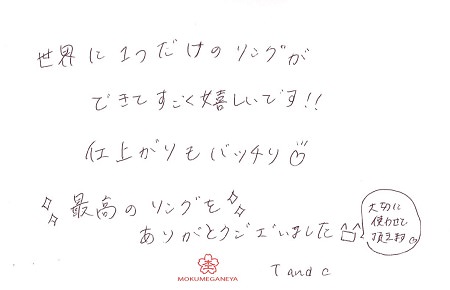 世界に1つだけのリングが
できてすごく嬉しいです!!
仕上がりもバッチリ♡
最高のリングを
ありがとうございました
大切に
使わせて
頂きます♡
MOKUMEGANEYA
T and C